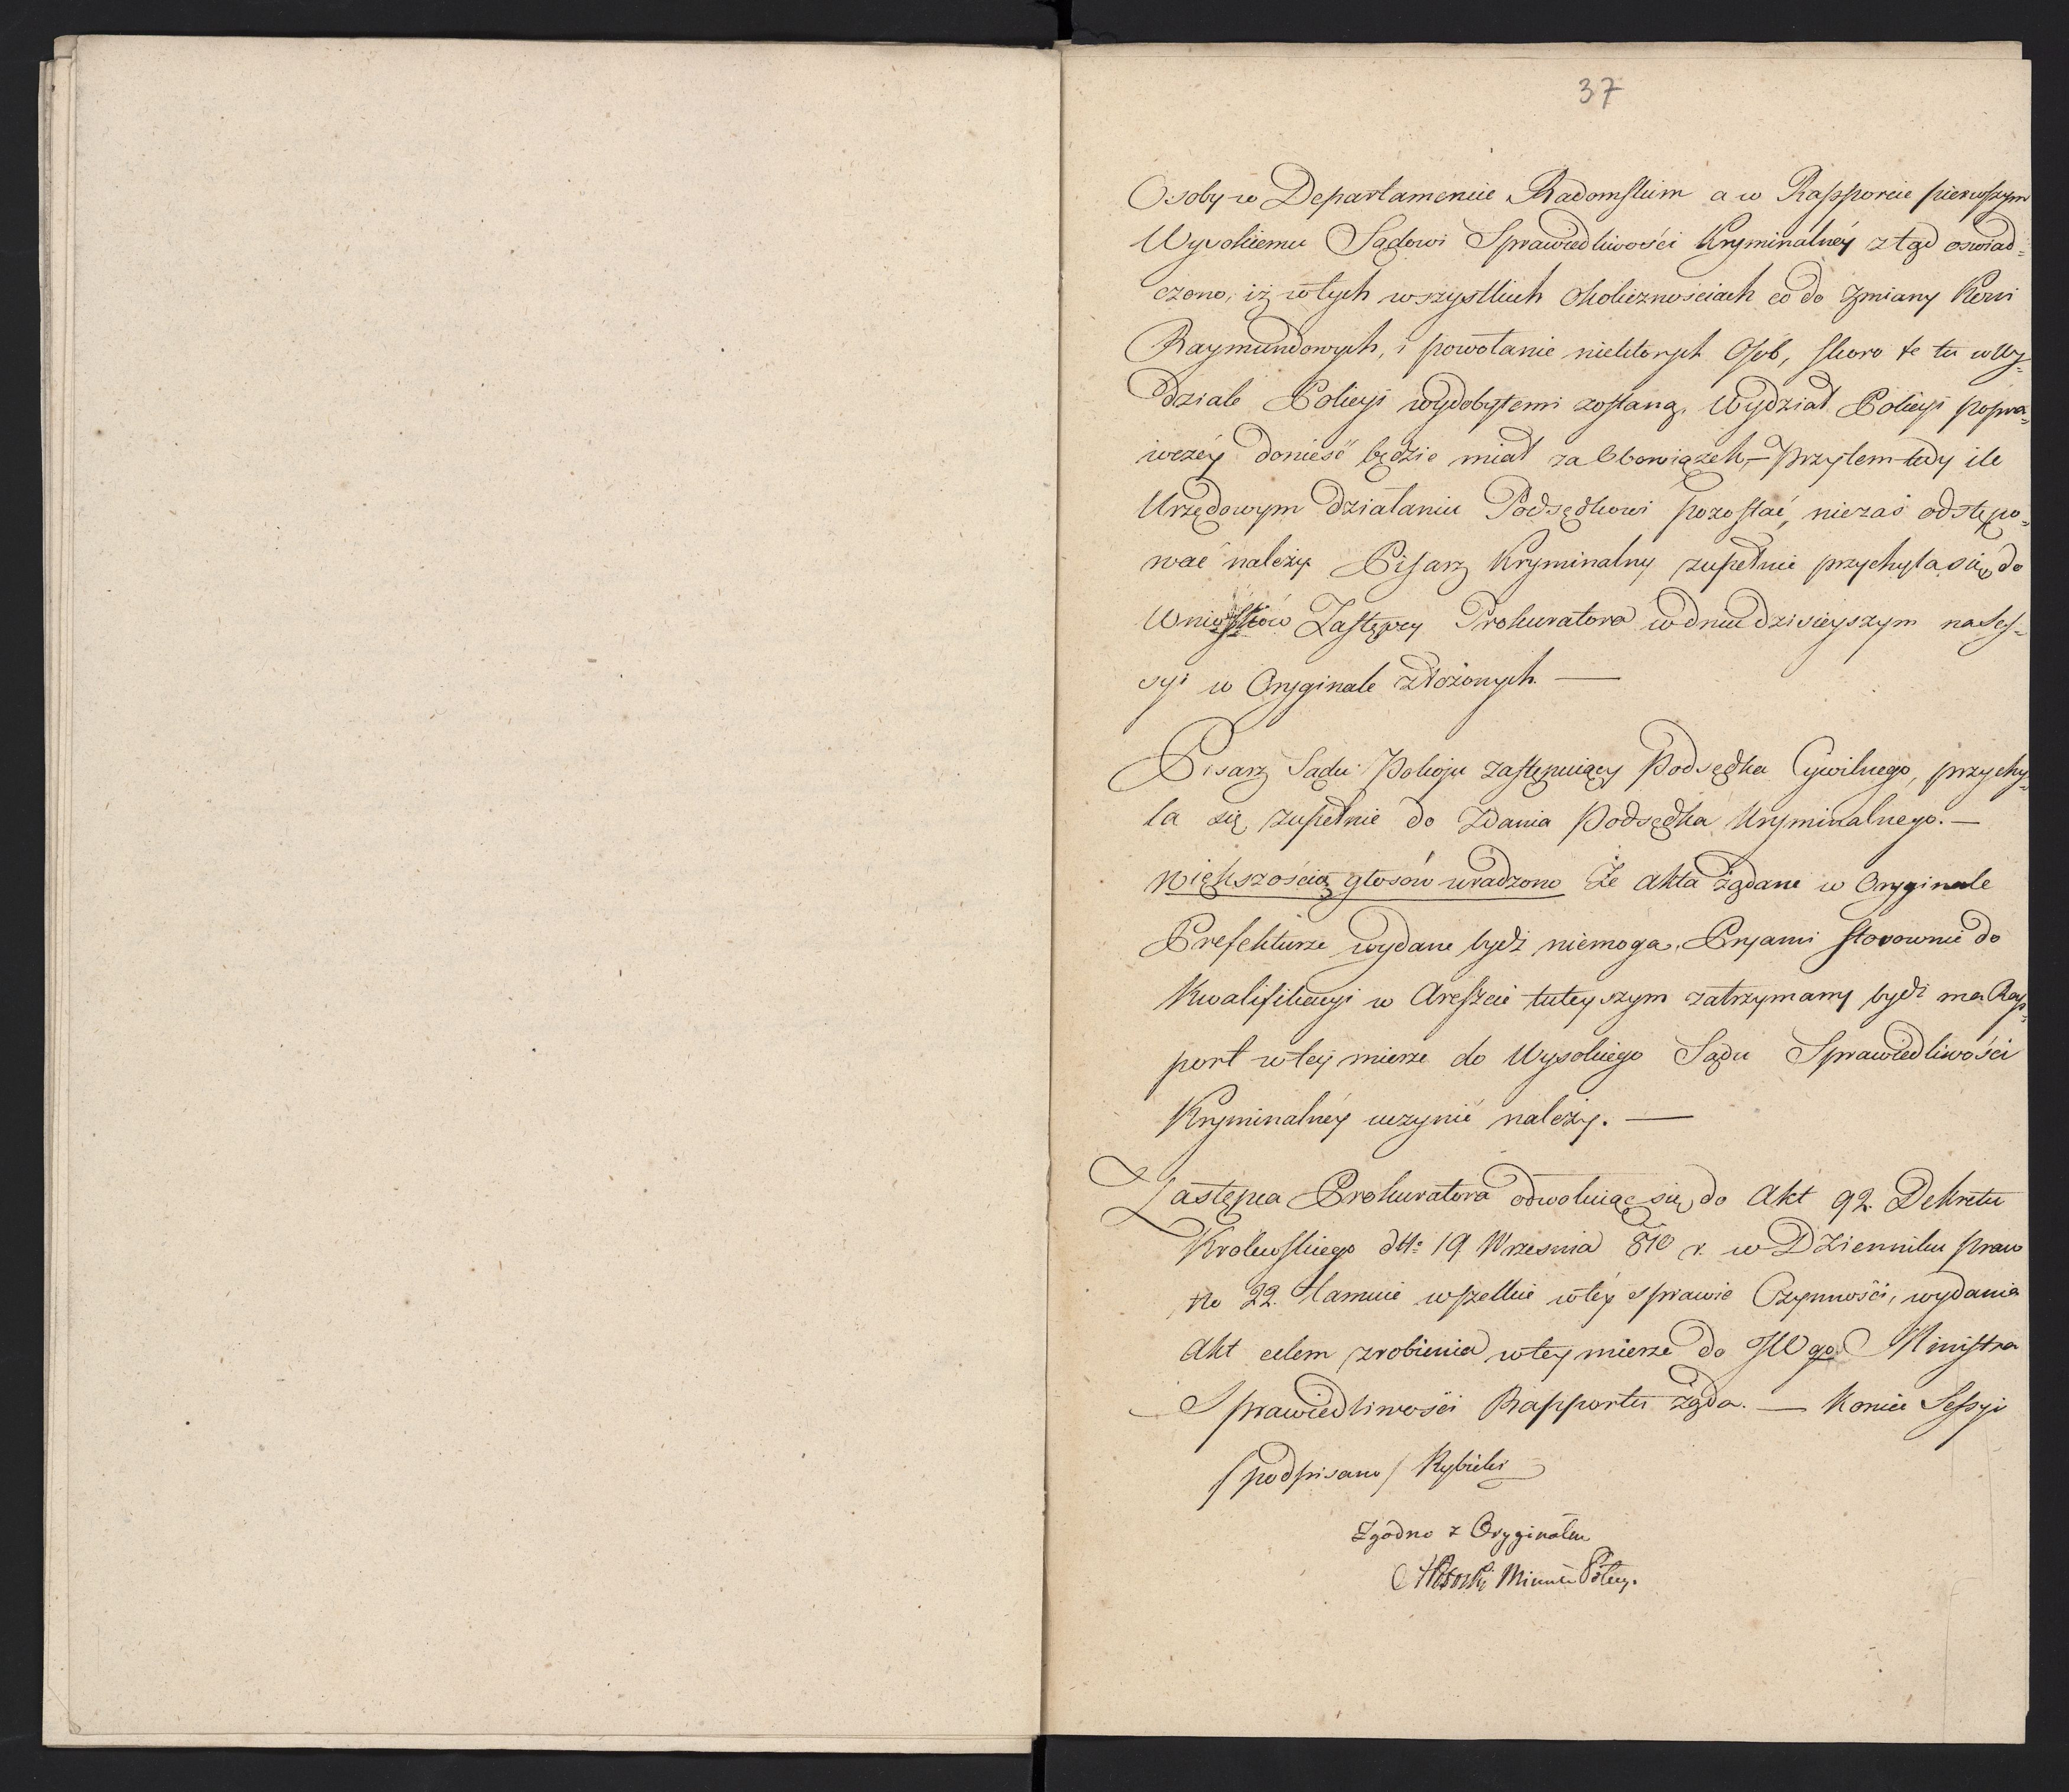 37
Osoby w Departamencie Radomskim a w Rapporcie pierwszym
Wysokiemu Sądowi Sprawiedliwości Kryminalnéy ztąd oswiad=
czono, iż wtych wszystkich okolicznościach co do zmiany Krwi
Raymundowych, i powołanie niektorych Osób, skoro te tu w Wy=
dziale Policyi wydobytemi zostaną, Wydział Policyi popra=
wczéy donieść będzie miał za Obowiązek, — Przytem tedy ile
Urzędowym działaniu Podsędkowi pozostać, niezaś odstępo=
wać należy Pisarz Kryminalny zupełnie przychyla się do
Wniosków Zastępcy Prokuratora w dniu dzisieyszym na Ses=
syi w Oryginale złożonych. —
Pisarz Sądu Pokoju zastępuiący Podsędka Cywilnego, przychy=
la się zupełnie do Zdania Podsędka Kryminalnego. —
większością głosów uradzono Że akta żądane w Oryginale
Prefekturze wydane bydź niemogą, Pryami stosownie do
Kwalifikacyi w Areszcie tuteyszym zatrzymany bydź ma. Rap=
port w tey mierze do Wysokiego Sądu Sprawiedliwości
Kryminalnéy uczynić należy. —
Zastępca Prokuratora odwołuiąc się do Akt 92. Dekretu
Krolewskiego dtt: 19 Wrzesnia 810 r. w Dzienniku praw
No 22. tamuie wszelkie w téy sprawie Czynności, wydania
Akt celem zrobienia w tey mierze do JWgo Ministra
Sprawiedliwości Rapportu żąda. — Koniec Sessyi
/ podpisano / Rybicki
Zgodno z Oryginałem